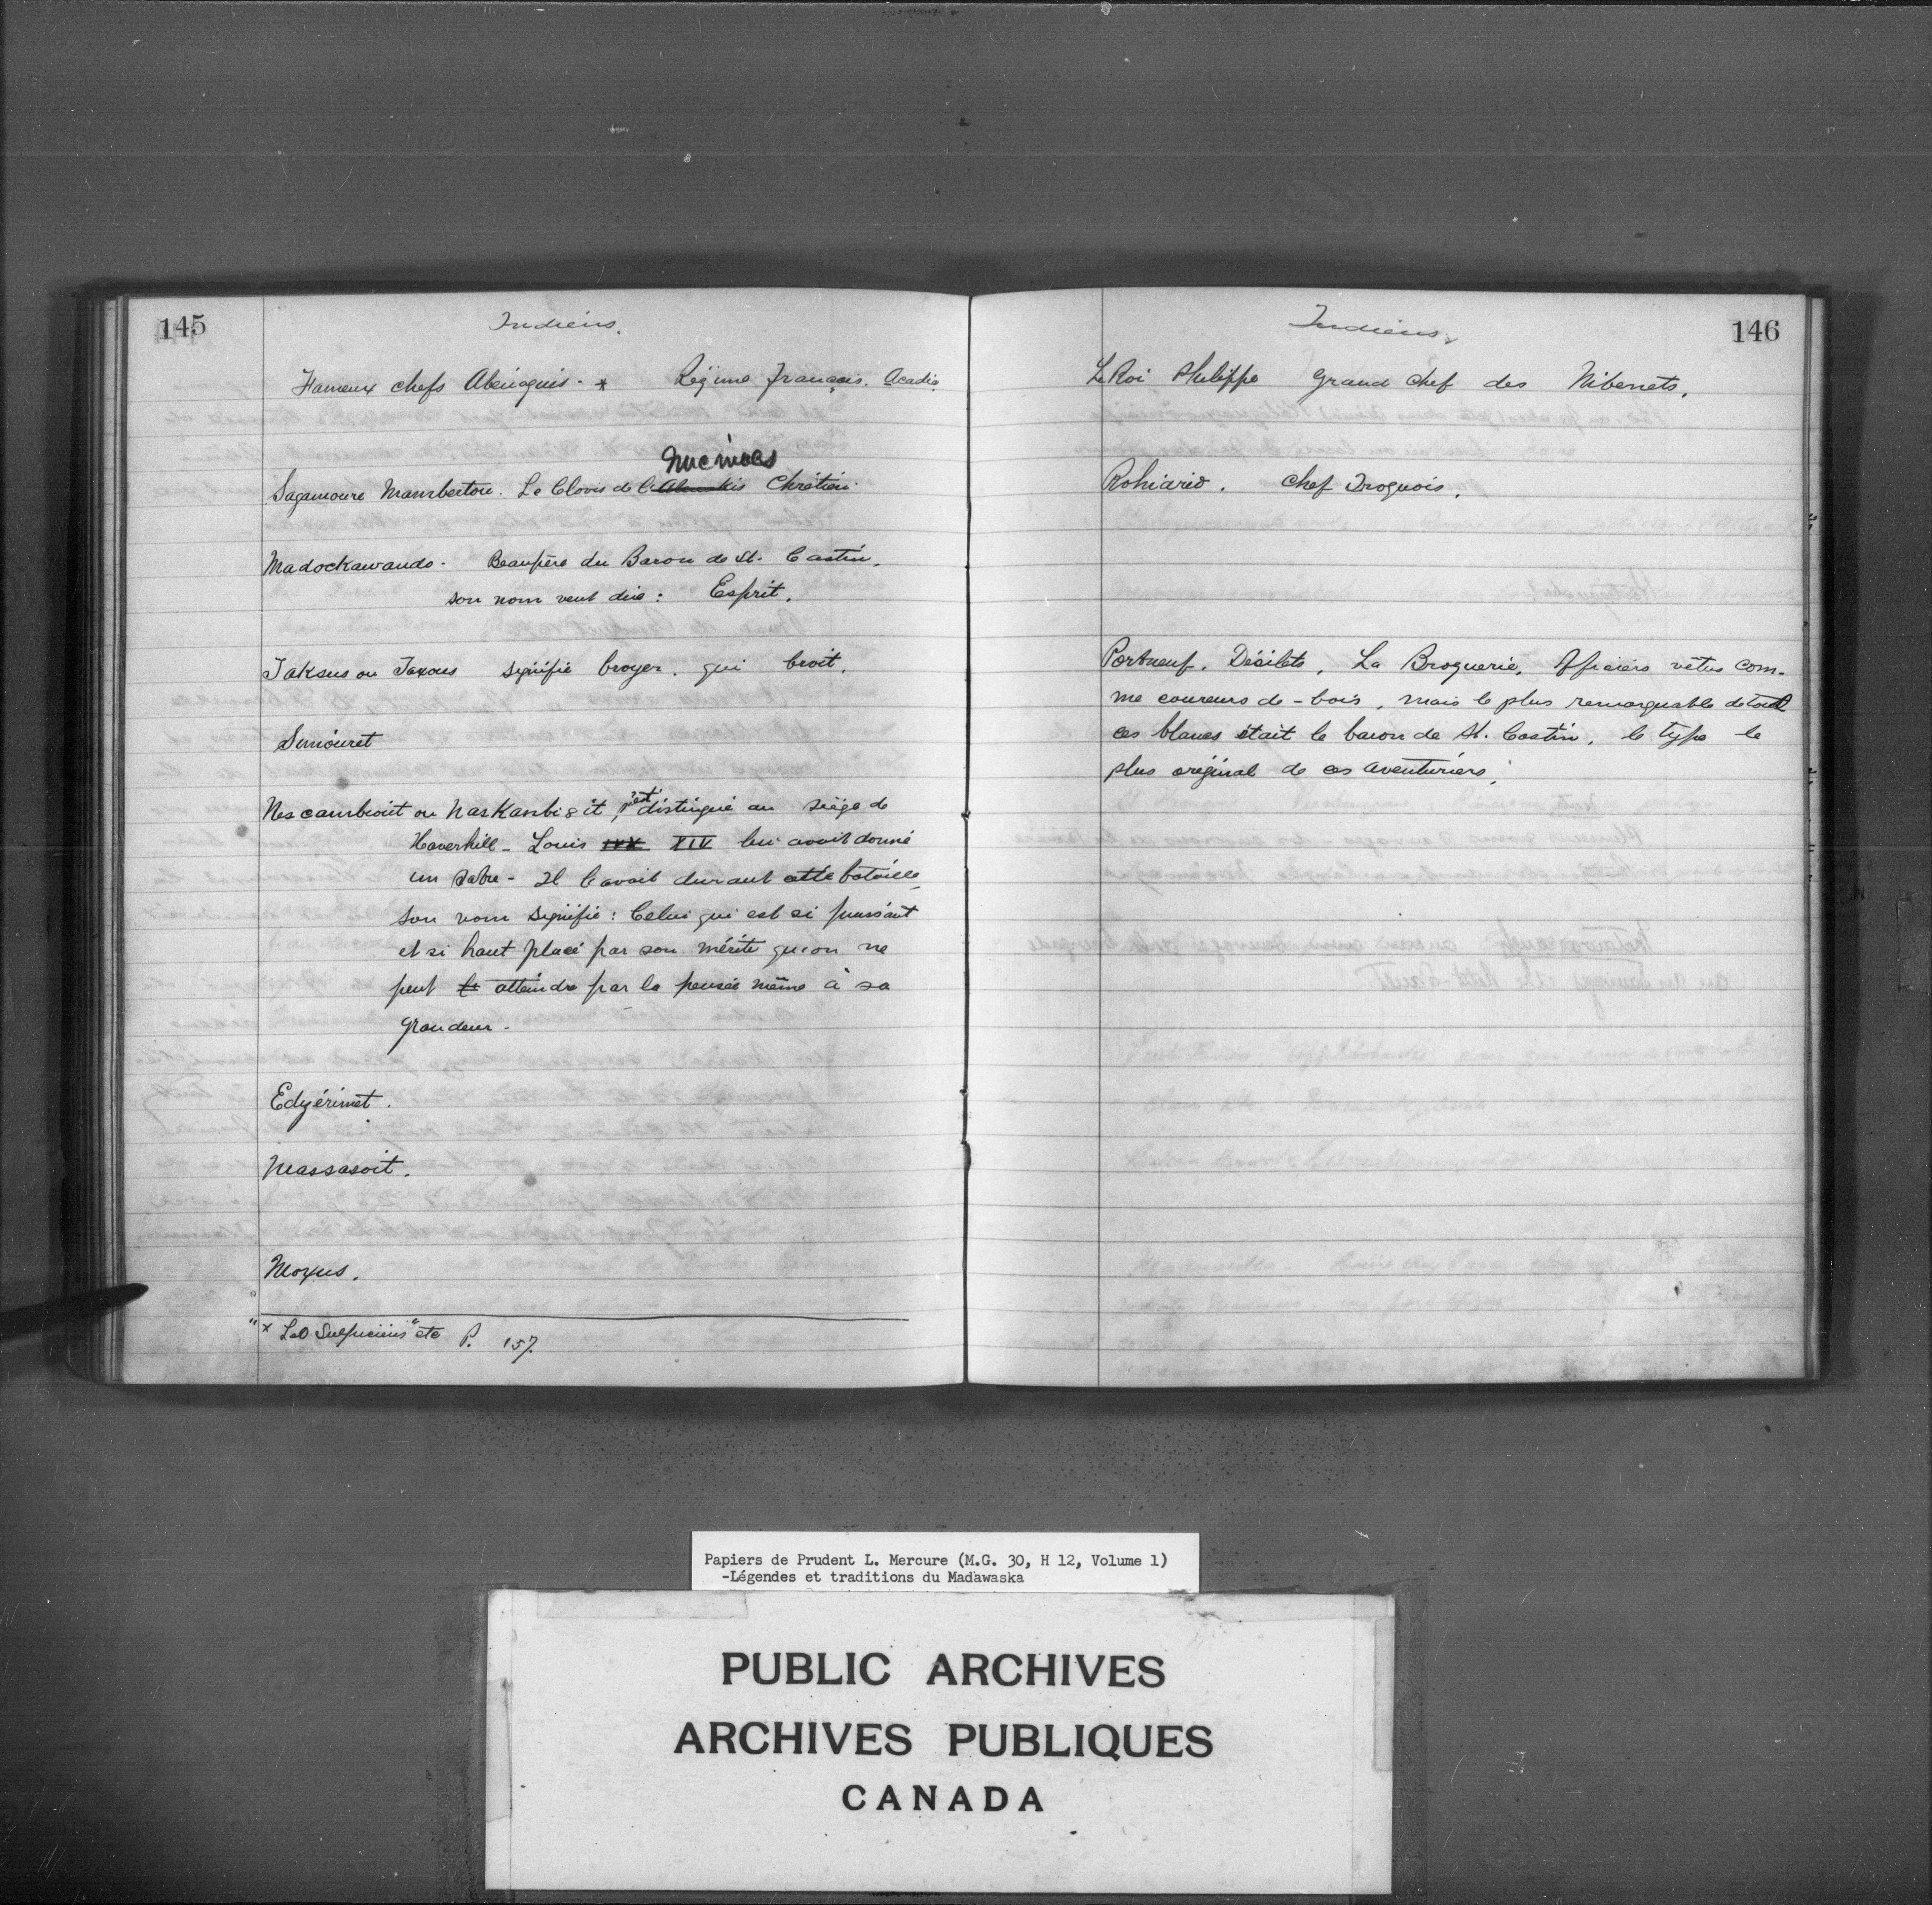 145
Indiens.
Fameux chefs Abénaquis. * Régime français. Acadie
Micmacs
Sagamoure Mamberton. Le Clovis de l'Abenakis Chrétien.
Madockawando. Beaupère du Baron de St. Castin.
son nom veut dire : Esprit.
Taksus ou Taxous signifie broyer. qui broit.
Simouret
Nescambiouit ou NasKambi8it, s'est distingué au siège de
Haverhill - Louis XIV lui avait donné
un sabre - Il l'avait durant cette bataille,
son nom signifie : Celui qui est si puissant
et si haut placé par son mérite qu'on ne
peut atteindre par la pensée même à sa
grandeur -
Edgérimet.
Massasoit.
Moxus.
"* Les Sulpiciens" etc P. 157.
146
Indiens.
Le Roi Philippe Grand chef des Nibenets.
Rohiario. Chef Iroquois.
Portneuf. Désilets, La Broquerie, Officiers vêtus com-
me coureurs de-bois, mais le plus remarquable de tout
ces blancs était le baron de St. Castin, le type le
plus original de ces aventuriers.
Papiers de Prudent L. Mercure (M.G. 30, H 12, Volume 1)
-Légendes et traditions du Madawaska
PUBLIC ARCHIVES
ARCHIVES PUBLIQUES
CANADA